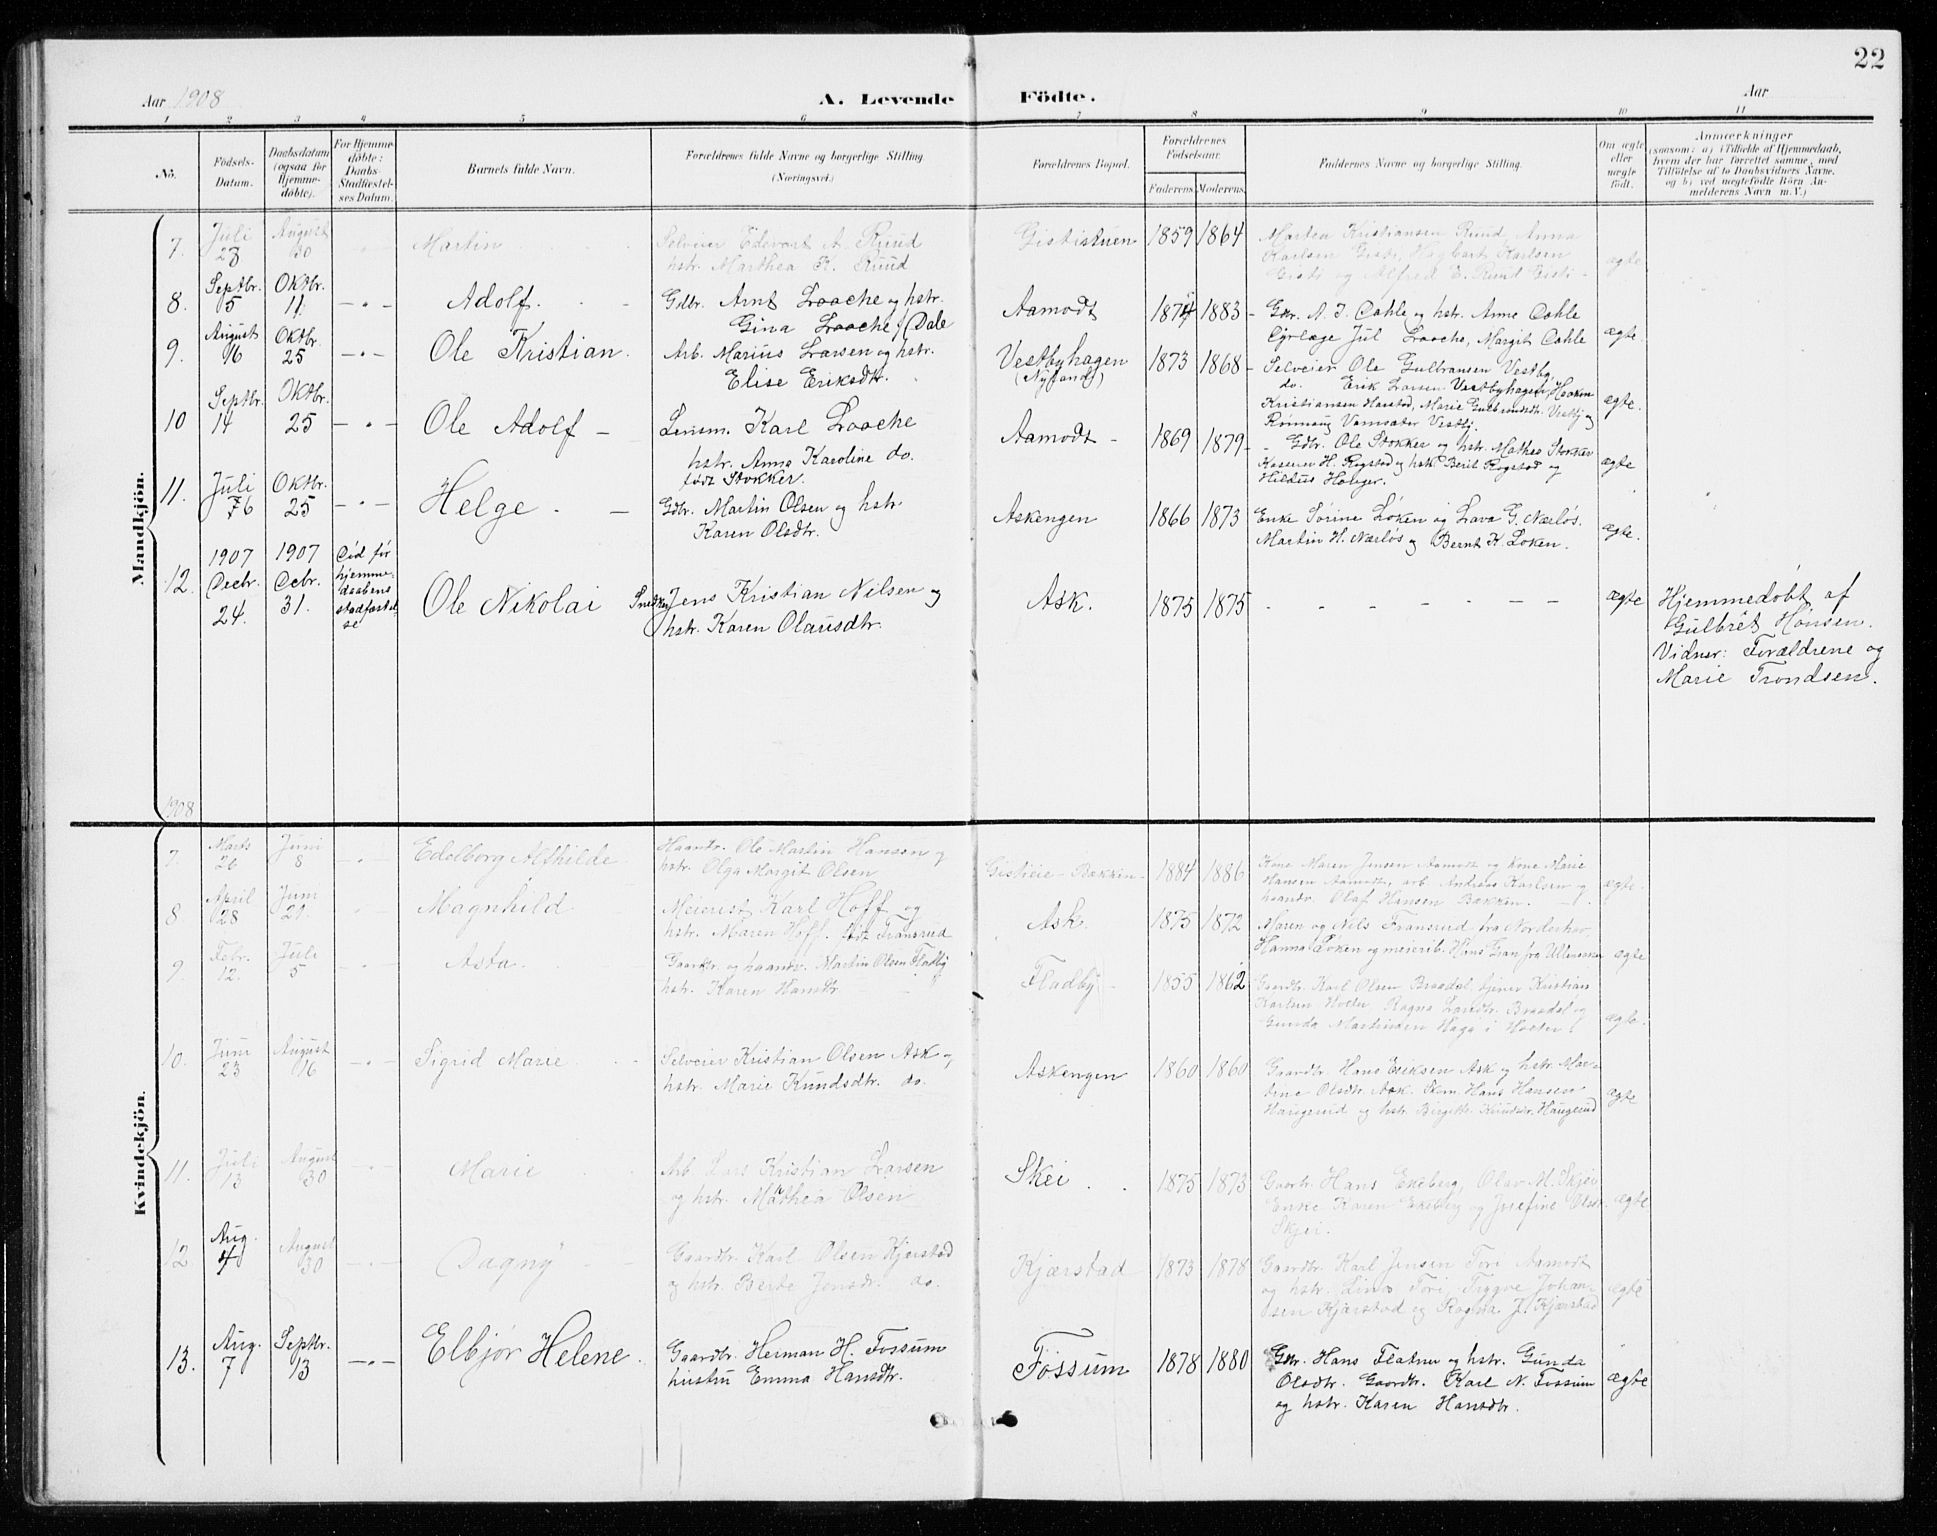 22
Aar 1908
A. Levende Födte.
Aar
1 2 3 4 5 6 7 8 9 10 11
No.
Födsels-Datum.
Daabsdatum (ogsaa for Hjemmedöbte).
For Hjemmedöbte: Daabs Stadfæstelses Datum.
Barnets fulde Navn.
Forældrenes fulde Navne og borgerlige Stilling. (Næringsvei.)
Forældrenes Bopæl.
Forældrenes Födselsaar.
Faderens. Moderens.
Faddernes Navne og borgerlige Stilling.
Om ægte eller uægte födt.
Anmærkninger (saasom: a) i Tilfælde af Hjemmedaab, hvem der har forrettet samme, med Tilföielse af to Daabsvidners Navne, og b) ved uægtefödte Börn Anmelderens Navn m. V.)
Mandkjön.
7. Juli 28 August 30 - " - Martin
Selveier Edevart A. Ruud
hstr. Marthea K. Ruud
Gististuen 1859 1864
Martea Kristiansen Ruud, Anna
Karlsen Gisti, Hagbart Karlsen
Gisti og Alfred E. Ruud Gisti -
ægte
8. Septbr. 5 Oktbr. 11. - " - Adolf.
Gdbr. Arnt Laache og hstr.
Gina Laache f. Dale
Aamodt 1874 1883
Gdr. A. J. Dahle og hstr. Anne Dahle
Dyrlæge Jul Laache, Margit Dahle
ægte.
9. August 16 Oktbr. 25 - " - Ole Kristian.
Arb. Marius Larsen og hstr.
Elise Eriksdtr.
Vestbyhagen
(Nyland)
1873 1868
Selveier Ole Gulbransen Vestby,
do. Erik Larsen Vestbyhagen, Haaken
Kristiansen Harstad, Marie Gulbrandsdtr. Vestby og
Rønnaug Vamsæter Vestby.
ægte.
10 Septbr. 14 Oktbr. 25 - " - Ole Adolf -
Lensm. Karl Laache
hstr. Anna Karoline do.
født Stokker.
Aamodt - 1869 1879
Gdbr. Ole Stokker og hstr. Mathea Stokker
Kasserer H. Rogstad og hstr. Berit Rogstad og
Hildus Hauger.
ægte
11. Juli 76 Oktbr. 25 - " - Helge. -
Gdbr. Martin Olsen og hstr.
Karen Olsdtr.
Askengen 1866 1873
Enke Sørine Løken og Lava G. Nærløs.
Martin H. Nærløs og Bernt K. Løken.
ægte.
12. 1907 Decbr. 24. 1907 Debr. 31.
Død før
hjemme-
daabens
stadfæstel-
se
Ole Nikolai
Snedker Jens Kristian Nilsen og
hstr. Karen Olausdtr.
Ask. 1875 1875 - - - - - - -
ægte
Hjemmedøbt af
Gulbret Hansen.
Vidner: Forældrene og
Marie Trondsen.
1908
Kvindekjön.
7. Marts 26 Juni 8 - " - Edelborg Alfhilde
Haandv. Ole Martin Hansen og
hstr. Olga Margit Olsen
Gistieie - Bakken - 1884 1886
Kone Maren Jensen Aamodt og Kone Marie
Hansen Aamodt, arb. Andreas Karlsen og
haandv. Olaf Hansen Bakken.
ægte.
8. April 28 Juni 21. - " - Magnhild
Meierist Karl Hoff og
hstr. Maren Hoff. født Fransrud
Ask. 1875 1872
Maren og Nils Fransrud fra Norderhov,
Hanna Løken og meierib. Hans Tran fra Ullensaker
ægte
9. Febr. 12. Juli 5 - " - Asta.
Gaardbr. og haandv. Martin Olsen Fladby
hstr. Karen Hansdtr.
Fladby - 1855 1862
Gaardbr. Karl Olsen Braadal, tjener Kristian
Karlsen Holter, Ragna Landbr. Braadal og
Gunda Martinsen Haga i Holter.
ægte.
10. Juni 23 August 16 - " - Sigrid Marie.
Selveier Kristian Olsen Ask og
hstr. Marie Knudsdtr. do.
Askengen 1860 1860
Gaardbr. Hans Eriksen Ask og hstr. Mar-
tine Olsdtr. Ask. Skom. Hans Hansen
Haugerud og hstr. Birgitte Knudsdr. Haugerud
ægte
11. Juli 13 August 30 - " - Marie
Arb. Lars Kristian Larsen
og hstr. Mathea Olsen
Skei. 1875 1873
Gaardbr. Hans Ekeberg, Olav M. Skjei
Enke Karen Ekeberg og Josefine Olsdtr.
Skjei.
ægte
12. Aug. 4 August 30 - " - Dagny
Gaardbr. Karl Olsen Kjærstad
og hstr. Berte Jensdr. do.
Kjærstad 1873 1878
Gaardbr. Karl Jensen Tori Aamodt
og hstr. Lina Tori, Trygve Johan-
sen Kjærstad og Ragna J. Kjærstad
ægte
13. Aug. 7 Septbr. 13 - " - Elbjør Helene.
Gaardbr. Herman H. Fossum
hustru Emma Hansdtr.
Fossum 1878 1880
Gdr. Hans Flatner og hstr. Gunda
Olsdtr. Gaardbr. Karl N. Fossum
og hstr. Karen Hansdtr.
ægte